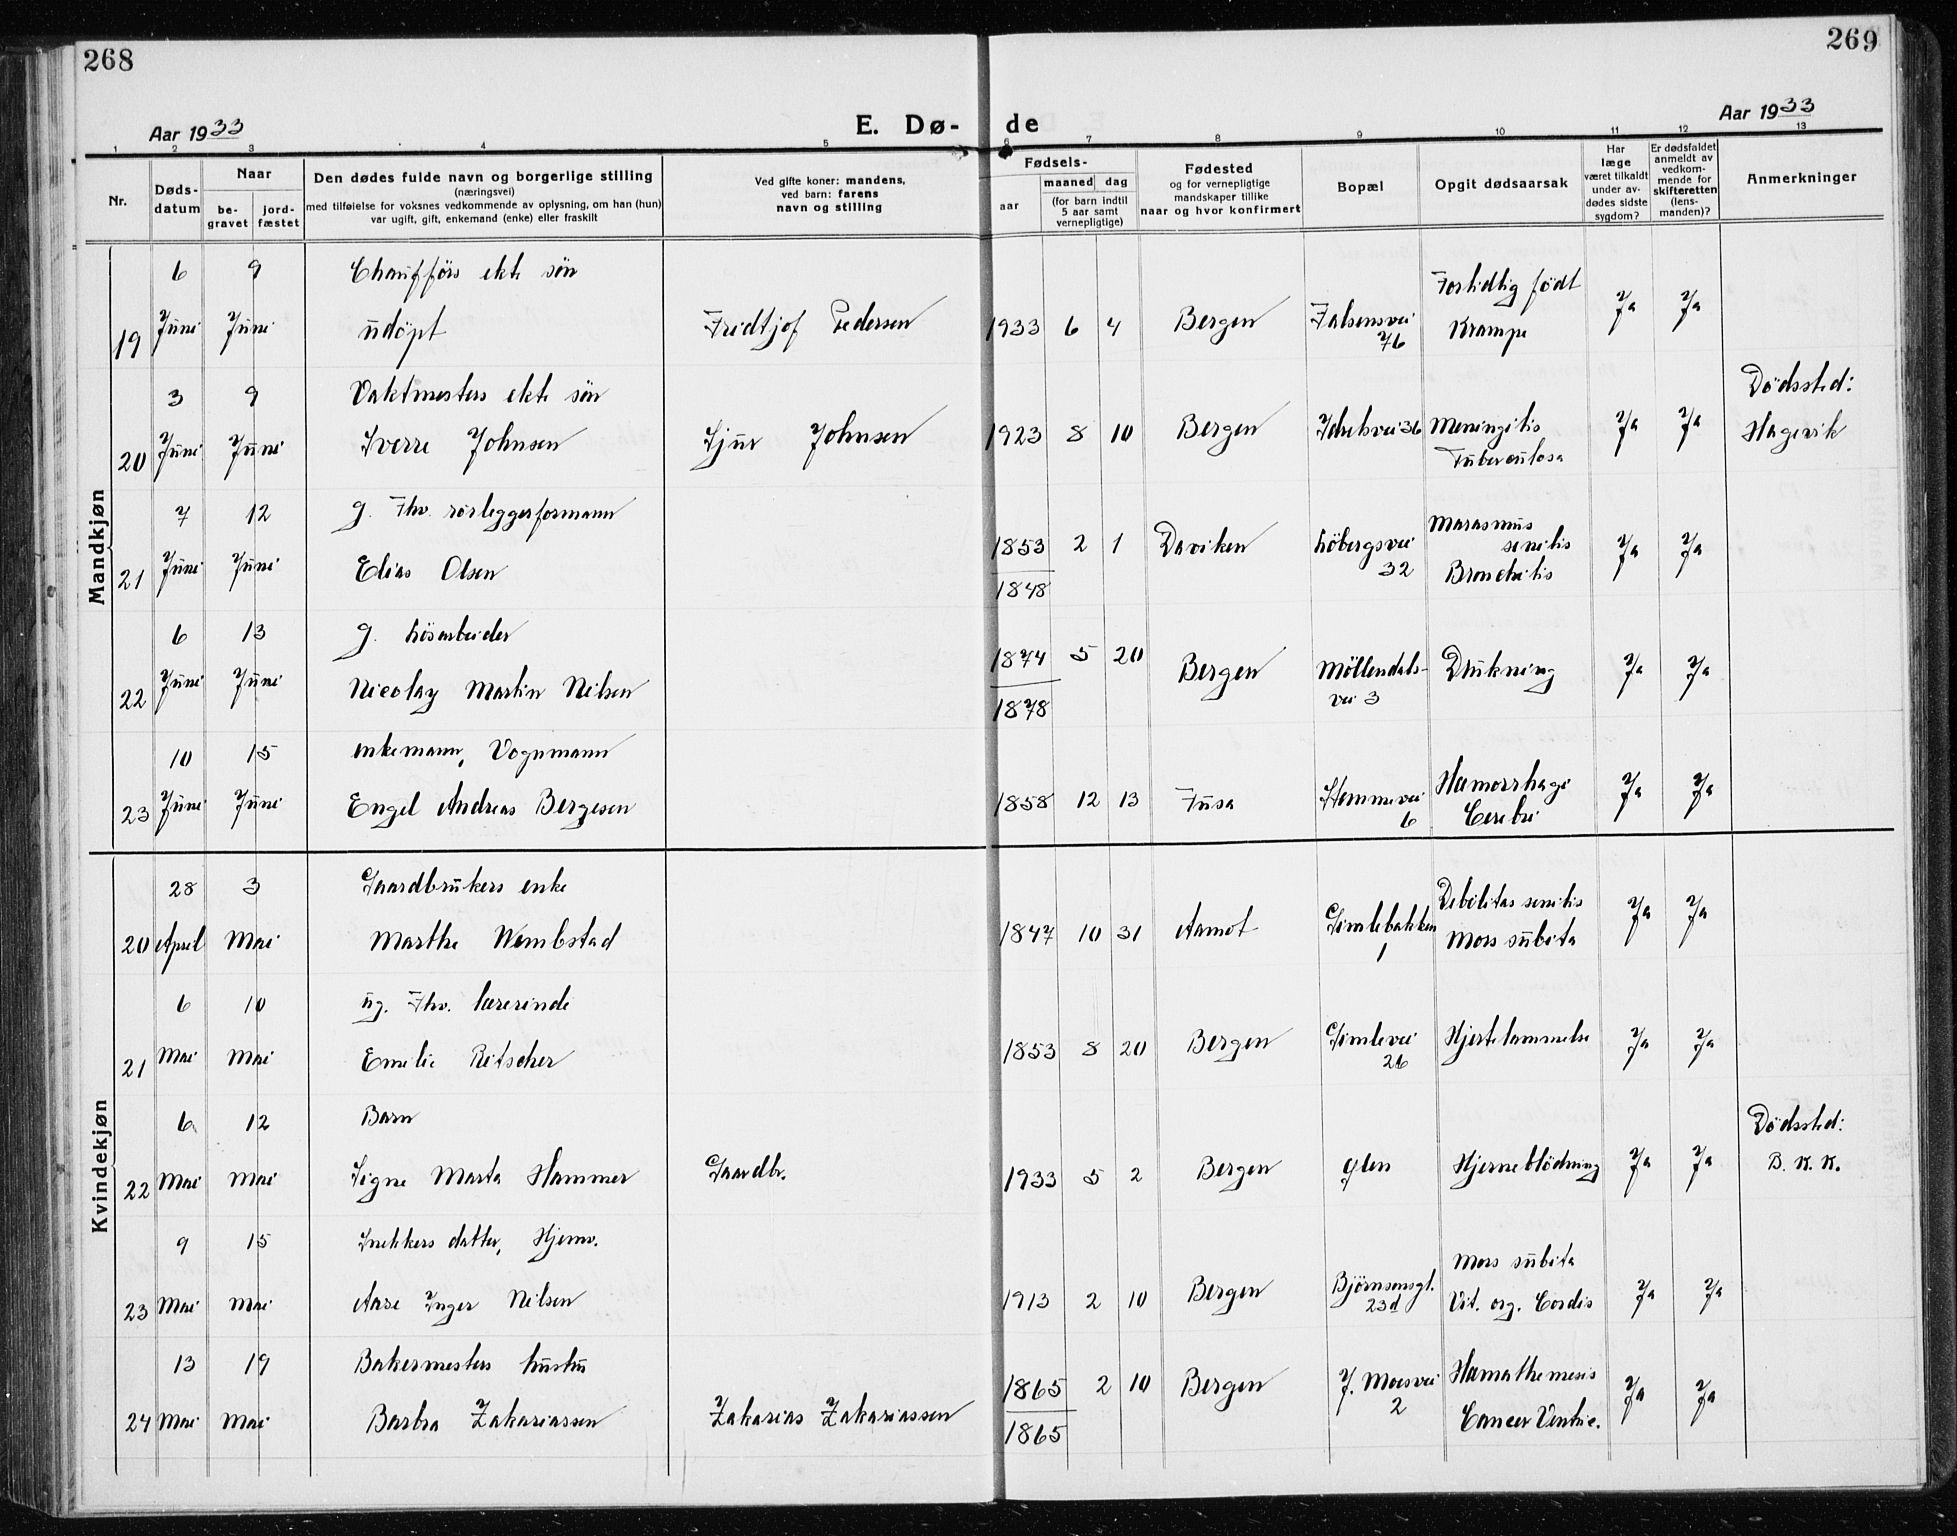 268
269
Aar 1933
E. Dø- de
Aar 1933
1 2 3 4 5 6 7 8 9 10 11 12 13
Nr.
Døds-
datum
Naar
be-
gravet
jord-
fæstet
Den dødes fulde navn og borgerlige stilling
(næringsvei)
med tilføielse for voksnes vedkommende av oplysning, om han (hun)
var ugift, gift, enkemand (enke) eller fraskilt
Ved gifte koner: mandens,
ved barn: farens
navn og stilling
Fødsels-
aar
maaned
dag
(for barn indtil
5 aar samt
vernepligtige)
Fødested
og for vernepligtige
mandskaper tillike
naar og hvor konfirmert
Bopæl
Opgit dødsaarsak
Har
læge
været tilkaldt
under av-
dødes sidste
sygdom?
Er dødsfaldet
anmeldt av
vedkom-
mende for
skifteretten
(lens-
manden)?
Anmerkninger
Mandkjøn
6 9 Chaufførs ekte søn Fortidlig født
19 Juni Juni udöpt Fridtjof Pedersen 1933 6 4 Bergen Falsensvei Krampe Ja Ja
76
3 9 Vaktmesters ekte søn Dödssted:
20 Juni Juni Sverre Johnsen Sjur Johnsen 1923 8 10 Bergen Idretsvei 36 Meningitis Ja Ja Hagevik
Tuberculosa
7 12 g. Fhv. rørleggerformann Marasmus
21 Juni Juni Elias Olsen 1853 2 1 Daviken Löbergsvei senilis Ja Ja
1848 32 Bronchitis
6 13 g. Løsarbeider
22 Juni Juni Nicolay Martin Nilsen 1874 5 20 Bergen Møllendals- Drukning Ja Ja
1878 vei 3
10 15 enkemann, Vognmann
23 Juni Juni Engel Andreas Bergesen 1858 12 13 Fusa Stemmevei Hæmorrhagi Ja Ja
6 Cerebri
Kvindekjøn
28 3 Gaardbrukers enke Debilitas senilis
20 April Mai Marthe Wembstad 1847 10 31 Aamot Gimlebakken Mors subita Ja Ja
1
6 10 ug. Fhv. lærerinde
21 Mai Mai Emilie Ritscher 1853 8 20 Bergen Gimlevei Hjertelammelse Ja Ja
26
6 12 Barn Dødssted:
22 Mai Mai Signe Marta Hammer Gaardbr. 1933 5 2 Bergen Hjerneblödning Ja Ja B. K. K.
9 15 Snekkers datter, Hjemv. Mors subita
23 Mai Mai Aase Inger Nilsen 1913 2 10 Bergen Bjørnsonsgt. Vit. org. Cordis Ja Ja
23d
13 19 Bakermesters hustru Hæmathemesis
24 Mai Mai Barbra Zakariassen Zakarias Zakariassen 1865 2 10 Bergen J. Moesvei Cancer Ventric. Ja Ja
1865 2